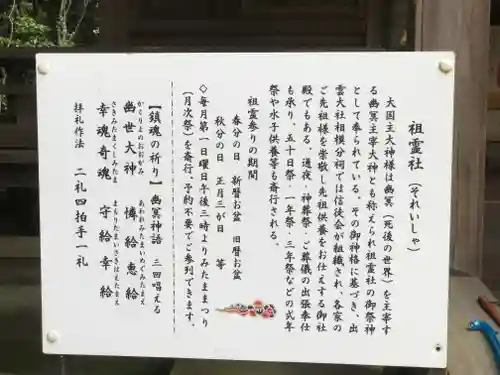 祖霊社(それいしゃ)
大国主大神様は幽冥(死後の世界)を主宰す
る幽冥主宰大神とも称えられ祖霊社の御祭神
として奉られている。その御神格に基づき、出
雲大社相模分祠では信徒会が組織され、各家の
ご先祖様を崇敬し先祖供養をお仕えする御社
殿でもある。通夜・神葬祭・ご葬儀の出張奉仕
も承り、五十日祭・一年祭・三年祭などの式年
祭や水子供養等も斎行される。
祖霊参りの期間
春分の日 新暦お盆 旧暦お盆
秋分の日 正月三が日 等
◇毎月第一日曜日午後三時よりみたままつり
(月次祭)を斎行。予約不要でご参列できます。
【鎮魂の祈り】幽冥神語 三回唱える
かくりよのおおかみ あわれみたまいめぐみたまえ
幽世大神 憐給恵給
さきみたまくしみたま まもりたまいさきはえたまえ
幸魂奇魂 守給幸給
拝礼作法 二礼四拍手一礼